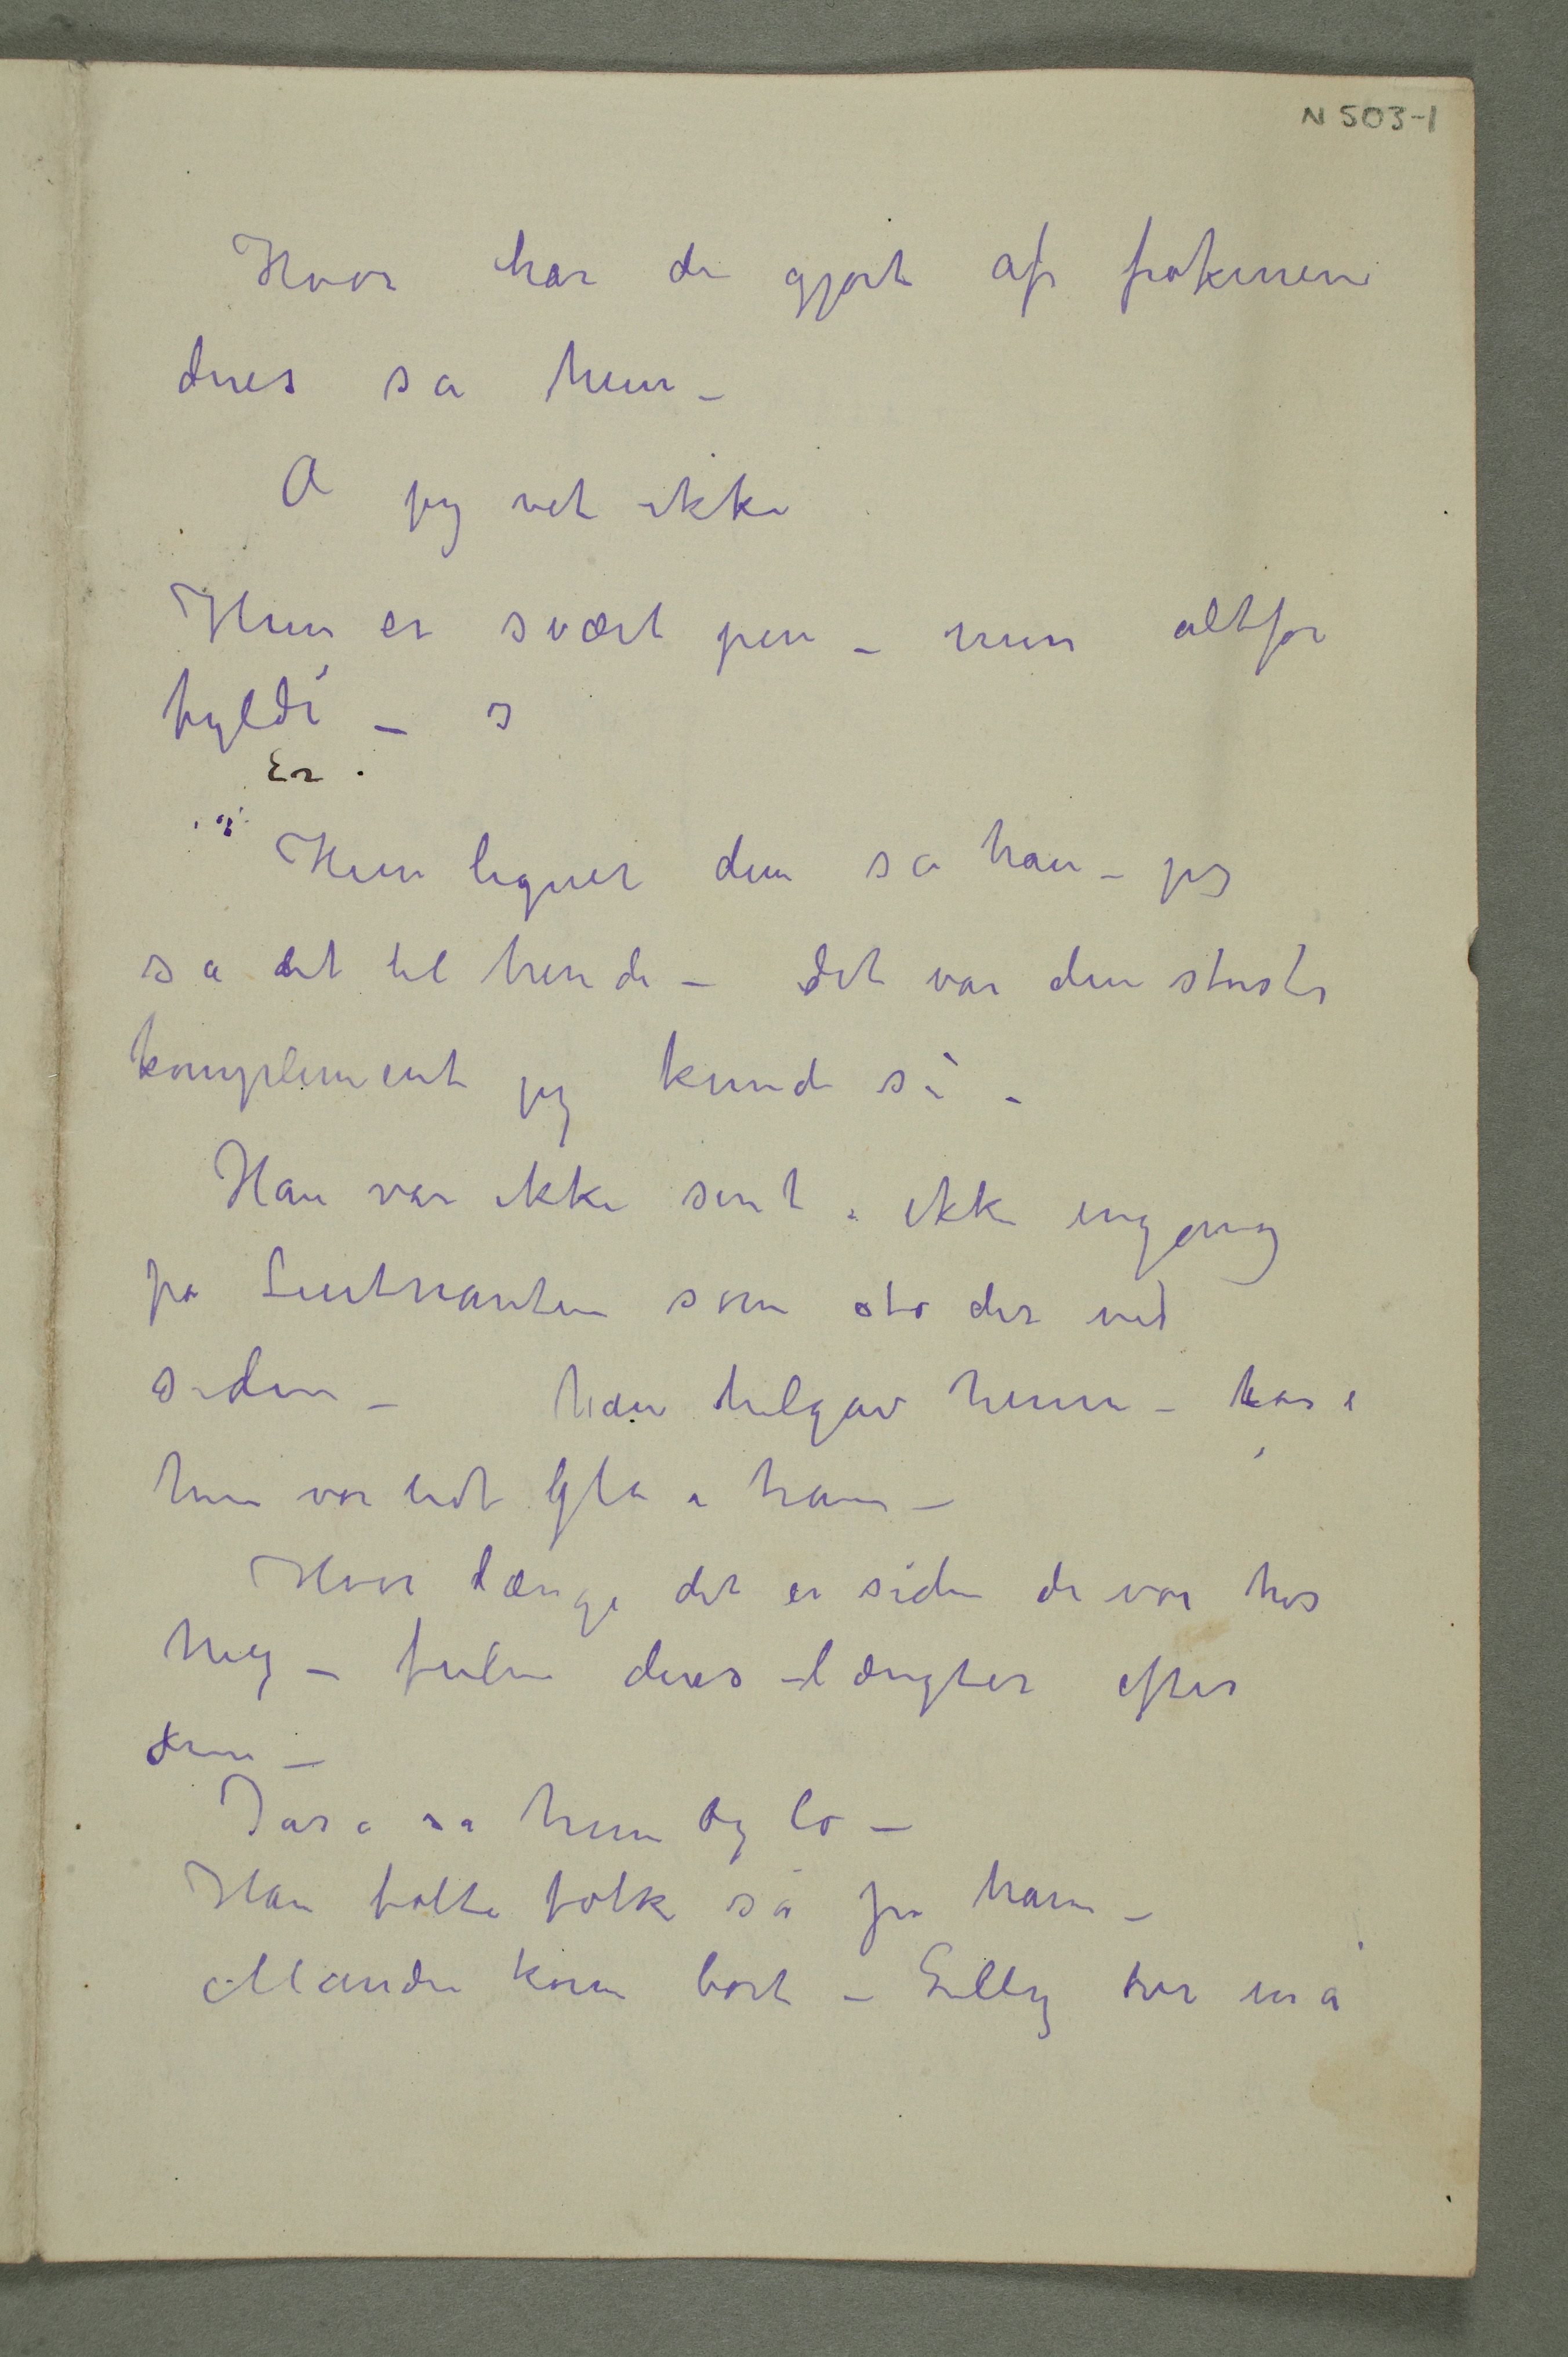 N 503-1
Hvor har de gjort af frøkenen
deres sa hun –
Å jeg vet ikke
Hun er svært pen – men altfor
fyldi – s
Er
Hun ligner dem sa han – jeg
sa det til hende – det var den største
kompliment jeg kunde si –
Han var ikke sint – ikke engang
på Leutnanten som sto der ved
siden – han tilgav henne –
hun var lidt gla i ham –
Hvor længe det er siden de var hos
mig – fuglen deres længter efter
dem –
Jaså sa hun og lo –
Han følte folk så på ham –
Manden kom bort – Silly her må